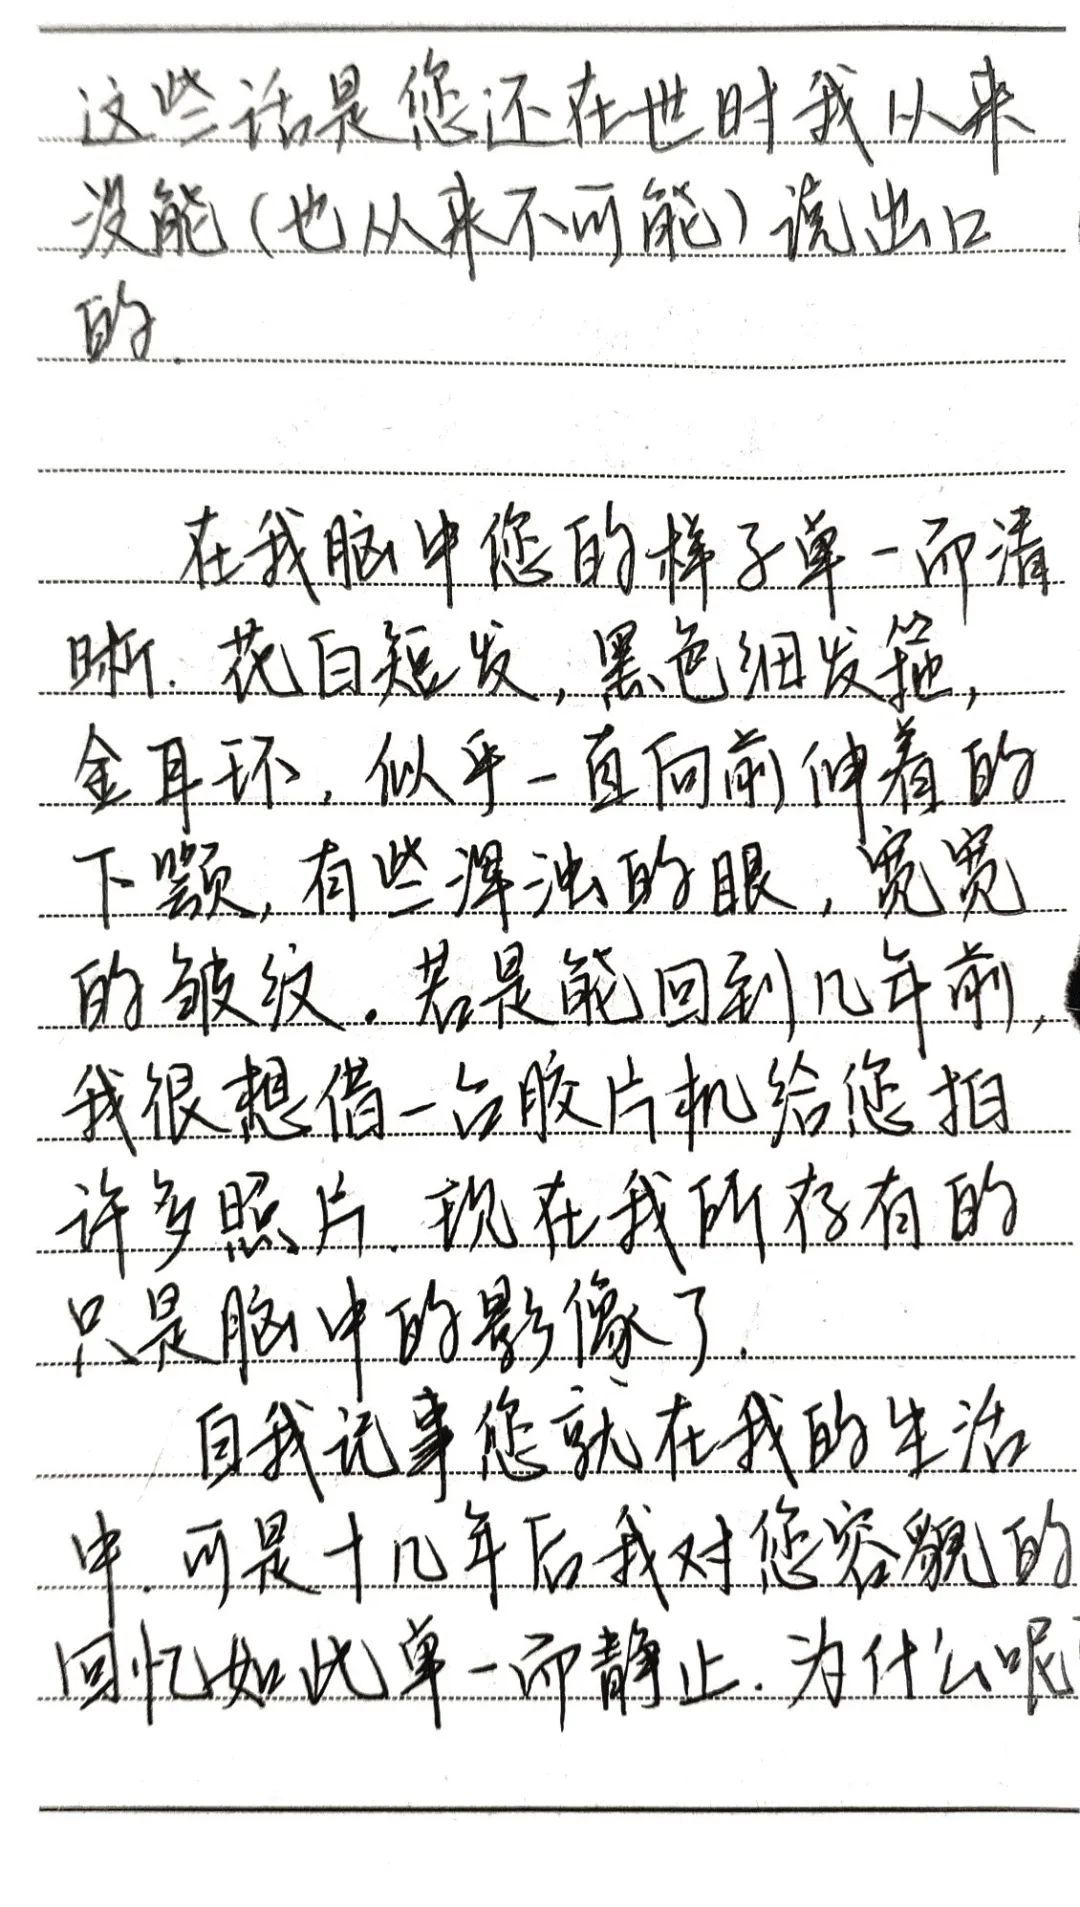 这些话是您还在世时我从来
没能(也从来不可能)说出口
的.
在我脑中您的样子单一而清
晰.花白短发,黑色细发箍,
金耳环,似乎一直向前伸着的
下颚,有些浑浊的眼,宽宽
的皱纹.若是能回到几年前,
我很想借一台胶片机给您拍
许多照片.现在我所存有的
只是脑中的影像了.
自我记事您就在我的生活
中.可是十几年后我对您容貌的
回忆如此单一而静止.为什么呢